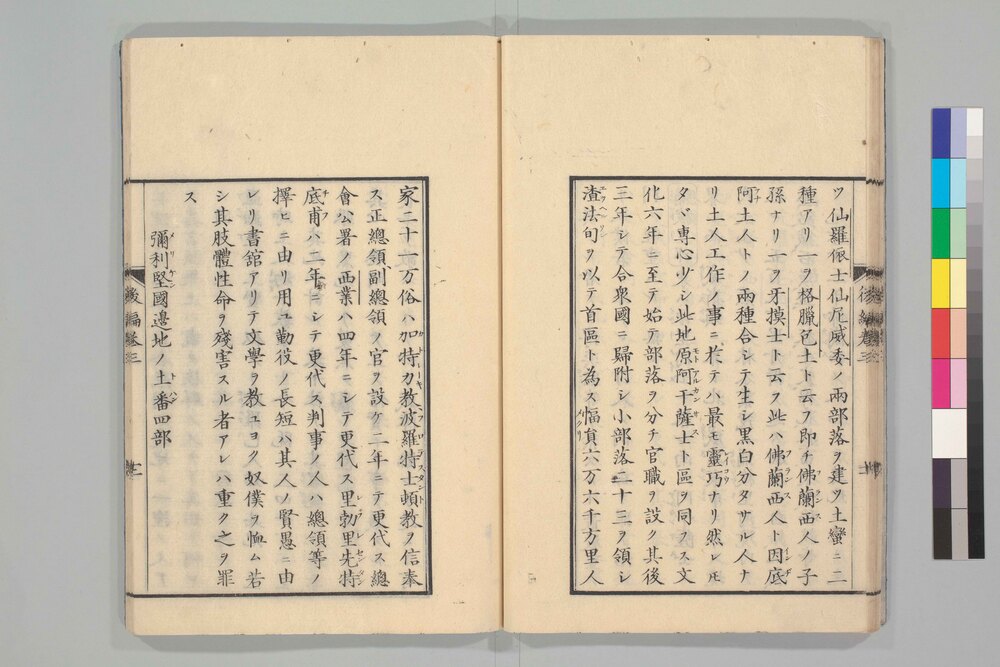 ツ仙羅依士仙尼威委ノ兩部落ヲ建ツ土蠻ニ二
種アリ一ヲ格臘包土ト云フ即チ佛蘭西人ノ子
孫ナリ一ヲ牙摸士ト云フ此ハ佛蘭西人ト因底
阿土人トノ兩種合シテ生シ黒白分タサル人ナ
リ土人工作ノ事ニ於テハ最モ靈巧ナリ然レモ
タヾ專心少シ此地原阿干薩士ト區ヲ同フス文
化六年ニ至テ始テ部落ヲ分チ官職ヲ設ク其後
三年シテ合衆國ニ歸附シ小部落二十三ヲ領シ
渣法旬ヲ以テ首區ト為ス幅員六万六千方里人
家二十一万俗ハ加特力教波羅特士頓教ヲ信奉
ス正總領副總領ノ官ヲ設ケ二年ニテ更代ス總
會公署ノ西業ハ四年ニシテ更代ス里勃里先特
底甫ハ二年ニシテ更代ス判事ノ人ハ總領等ノ
擇ヒニ由リ用ユ勤役ノ長短ハ其人ノ賢愚ニ由
レリ書館アリテ文學ヲ教ユヨク奴僕ヲ恤ム若
シ其肢體性命ヲ殘害スル者アレハ重ク之ヲ罪
ス
彌利堅國邊地ノ土番四部
後編巻三